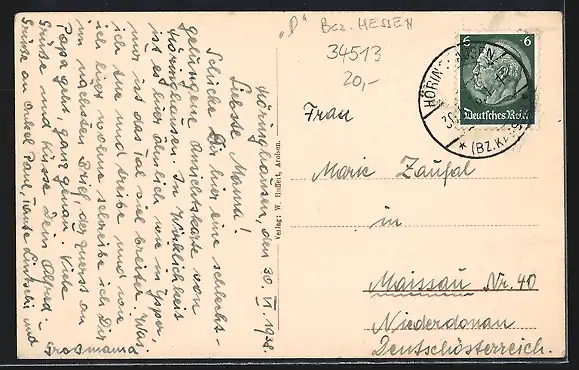 "D" Bez. HESSEN
34513
20,-
Höringhausen, den 30. VI. 1938.
Liebste Mama!
Schicke Dir hier eine schlecht-
gelungene Ansichtskarte von
Höringhausen. In Wirklichkeit
ist es hier ähnlich wie in Ysper,
nur ist das Tal viel breiter. Was
ich tue und treibe und wo
ich hier wohne schreibe ich Dir
im nächsten Brief, der zuerst an
Papa geht, ganz genau. Viele
Grüße und Küsse Dein Alfred
Grüße an Onkel Paul, Tante und
Grossmama
Verlag: W. Huffert, Arolsen.
6 6
Deutsches Reich
HÖRINGHAUSEN
* (BZ.KASSEL)
Frau
Marie Zaufal
in
Maissau Nr. 40
Niederdonau
Deutschösterreich.